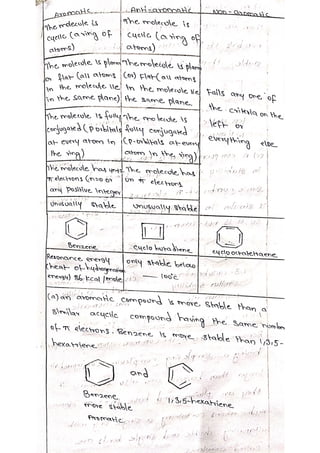 Aromatic Anti-aromatic Non-aromatic
The molecule is The molecule is
cyclic (a ring of cyclic (a ring of
atoms) atoms)
The molecule is planar The molecule is planar
or flat (all atoms (or) Flat (all atoms
in the molecule lie in the molecule lie
in the same plane) the same plane.
Fails any one of
the criteria on the
left or
everything else
The molecule is fully The molecule is
conjugated (p orbitals fully conjugated
at every atom in (p-orbitals at every
the ring) atom in the ring)
The molecule has The molecule has
π electrons (n=0 or on π electrons
any positive integer
unusually stable unusually stable
Benzene cyclo butadiene cyclooctatetraene
Resonance energy only stable below
(heat of hydrogenation — 100°C
energy) 36 kcal/mole
(a) an aromatic compound is more stable than a
similar acyclic compound having the same number
of π electrons. Benzene is more stable than 1,3,5-
hexatriene
and
Benzene 1,3,5-hexatriene
more stable
Aromatic